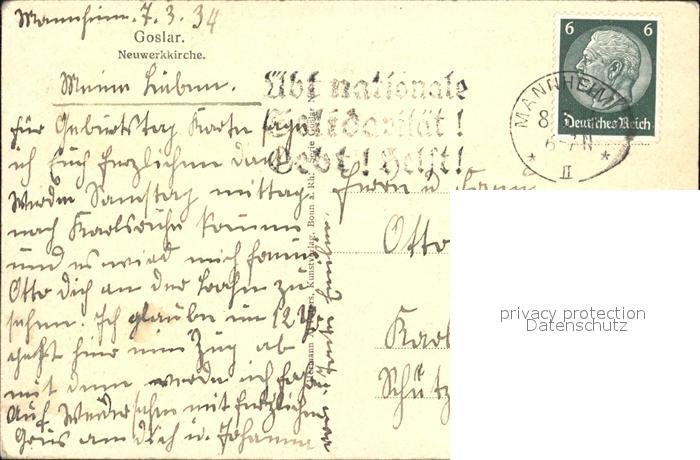 Mannheim. 7. 3. 34
Goslar.
Neuwerkkirche.
Meine Lieben.
für Geburtstag Karte sage
ich Euch herzlichen Dank
Werde Samstag mittag
nach Karlsruhe kommen
und es wird mich freuen
Otto dich an der Bahn zu
sehen. Ich glaube um 12 Uhr
geht hier ein Zug ab
mit dem werde ich
Auf Wiedersehen mit herzlichem
Grus an dich u. Johanna
Übt nationale
Solidarität!
Gebt! Helft!
6 6
Deutsches Reich
MANNHEIM
8
II
Herrn u.
Otto
Karl
Schütz
privacy protection
Datenschutz